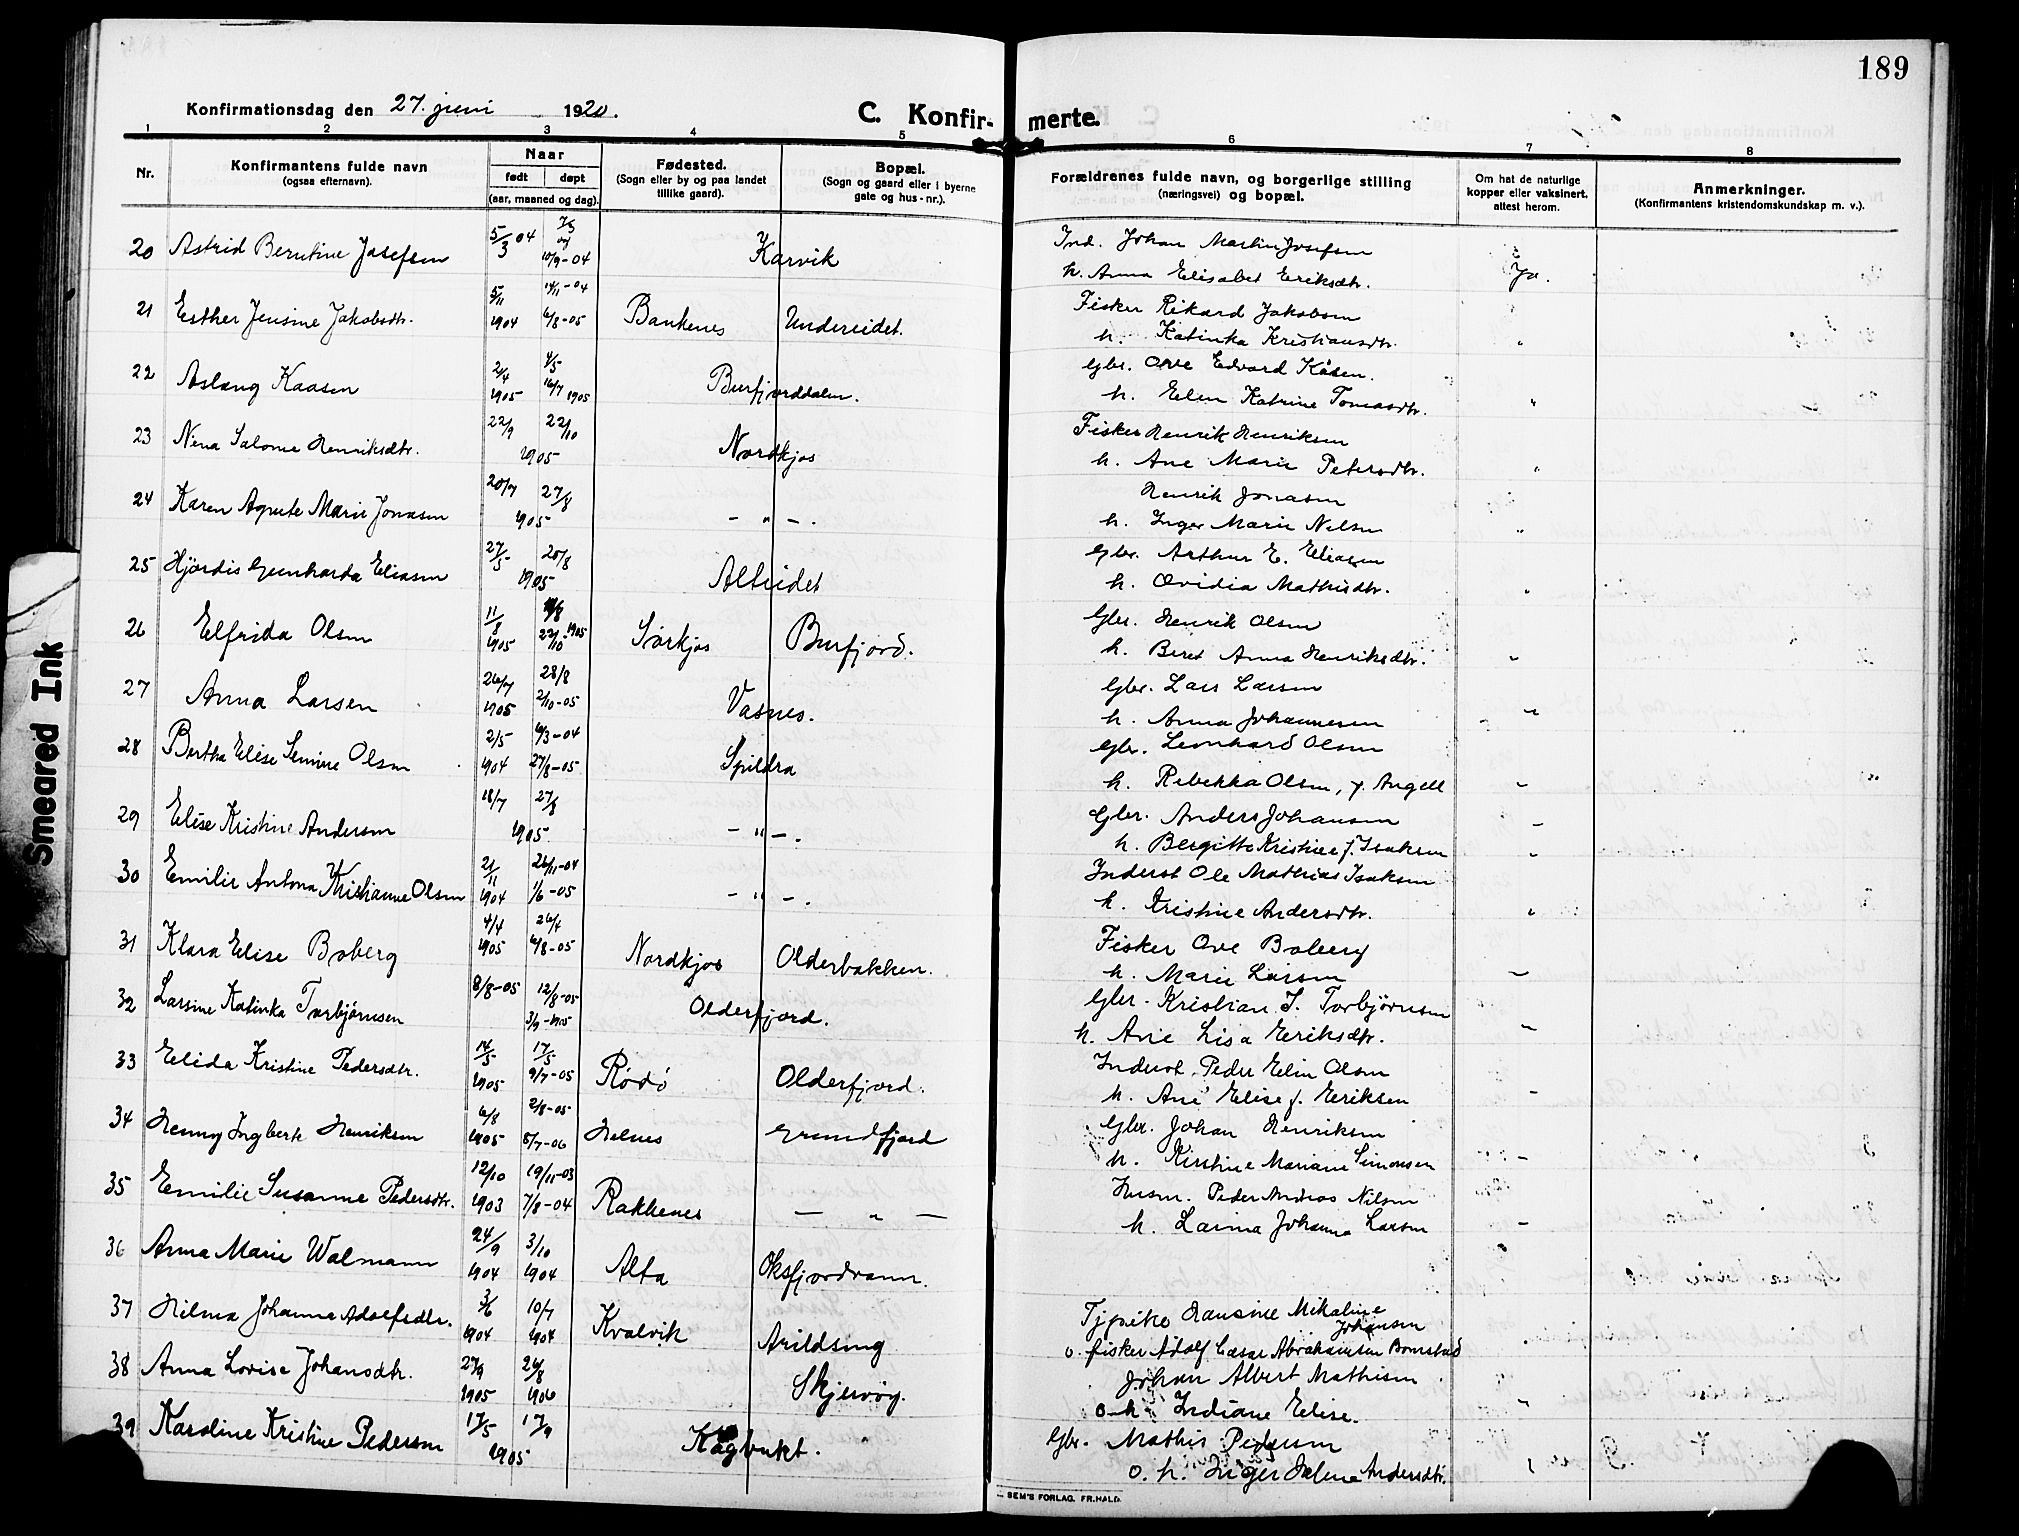 189
Konfirmationsdag den 27. juni 1920.
C. Konfirmerte.
1 2 3 4 5 6 7 8
Nr.
Konfirmantens fulde navn
(ogsaa efternavn).
Naar
født døpt
(aar, maaned og dag).
Fødested.
(Sogn eller by og paa landet
tillike gaard).
Bopæl.
(Sogn og gaard eller i byerne
gate og hus-nr.).
Forældrenes fulde navn, og borgerlige stilling
(næringsvei) og bopæl.
Om hat de naturlige
kopper eller vaksinert.
attest herom.
Anmerkninger.
(Konfirmantens kristendomskundskap m. v.).
20 Astrid Berntine Josefsen 5/3 04 7/3 og 10/9-04 Karvik Ind. Johan Martin Josefsen
h. Anna Elisabet Eriksdtr. Ja.
21 Esther Jensine Jakobsdtr. 5/11 1904 14/11-04 6/8-05 Bankenes Undereidet. Fisker Rikard Jakobsen
h. Katinka Kristiansdtr. "
22 Aslaug Kaasen 2/4 1905 4/5 16/7 1905 Burfjorddalen. Gbr. Ove Edvard Kåsen.
h. Elen Katrine Tomasdtr. "
23 Nena Salome Henriksdtr. 22/9 22/10 1905 Nordkjos Fisker Henrik Henriksen
h. Ane Marie Petersdtr. "
24 Karen Agnete Marie Jonasen 20/7 27/8 1905 - " - . Henrik Jonasen
h. Inger Marie Nilsen "
25 Hjørdis Gunharda Eliasen 27/5 20/8 1905 Alteidet Gbr. Arthur E. Eliasen
h. Ovidia Mathisdtr. "
26 Elfrida Olsen 11/8 1905 22/10 1905 Sørkjos Burfjord. Gbr. Henrik Olsen
h. Beret Anna Henriksdtr. "
27 Anna Larsen 26/7 1905 28/8 2/10-05 Vasnes. Gbr. Lars Larsen
h. Anna Johannesen "
28 Bertha Elise Semine Olsen 2/5 1904 6/3-04 27/8-05 Spildra Gbr. Leonhard Olsen
h. Rebekka Olsen, f. Angell "
29 Elise Kristine Andersen 18/7 27/8 1905 - " - . Gbr. Anders Johansen
h. Bergitte Kristine f. Isaksen "
30 Emilie Antona Kristianne Olsen 21/11 1904 26/11-04 1/6-05 - " - . Inderst Ole Mathias Isaksen
h. Kristine Andersdtr. "
31 Klara Elise Boberg 4/4 1905 26/4 6/8-05 Nordkjos Olderbakken. Fisker Ove Boberg
h. Marie Larsen "
32 Larsine Katinka Torbjørnsen 8/8-05 12/8-05 3/9-1905 Olderfjord. Gbr. Kristian J. Torbjørnsen
h. Ane Lisa Eriksdtr. "
33 Elida Kristine Pedersdtr. 14/5 1905 17/5 9/7-05 Rødø Olderfjord. Inderst Peder Elin Olsen
h. Ane Elise f. Eriksen "
34 Henny Ingberk Henriksen 6/8 1905 2/8-05 8/7-06 Helnes Grundfjord Gbr. Johan Henriksen
h. Kirstine Mariane Simonsen "
35 Emilie Susanne Pedersdtr. 12/10 1903 19/11-03 7/8-04 Rakkenes - " - Husm. Peder Andreas Nilsen
h. Larina Johanna Larsen "
36 Anna Marie Walmann 24/9 1904 3/10 1904 Alta Oksfjordvann.
37 Hilma Johanne Adolfsdtr. 3/6 1904 10/7 1904 Kvalvik Arildsing Tjpike Hansine Mikaline
Johansen
o. fisker Adolf Cæsar Abrahamsen Bomstad
38 Anna Lovise Johansdtr. 27/9 1905 26/8 1906 Skjervøy. Johan Albert Mathisen
o. h. Indiane Elise. "
39 Karoline Kristine Pedersen 17/5 17/9 1905 Kågbukt. Gbr. Mathis Pedersen
o. h. Inger Helene Andersdtr. "
SEM'S FORLAG, FR.HALD.
Smeared Ink